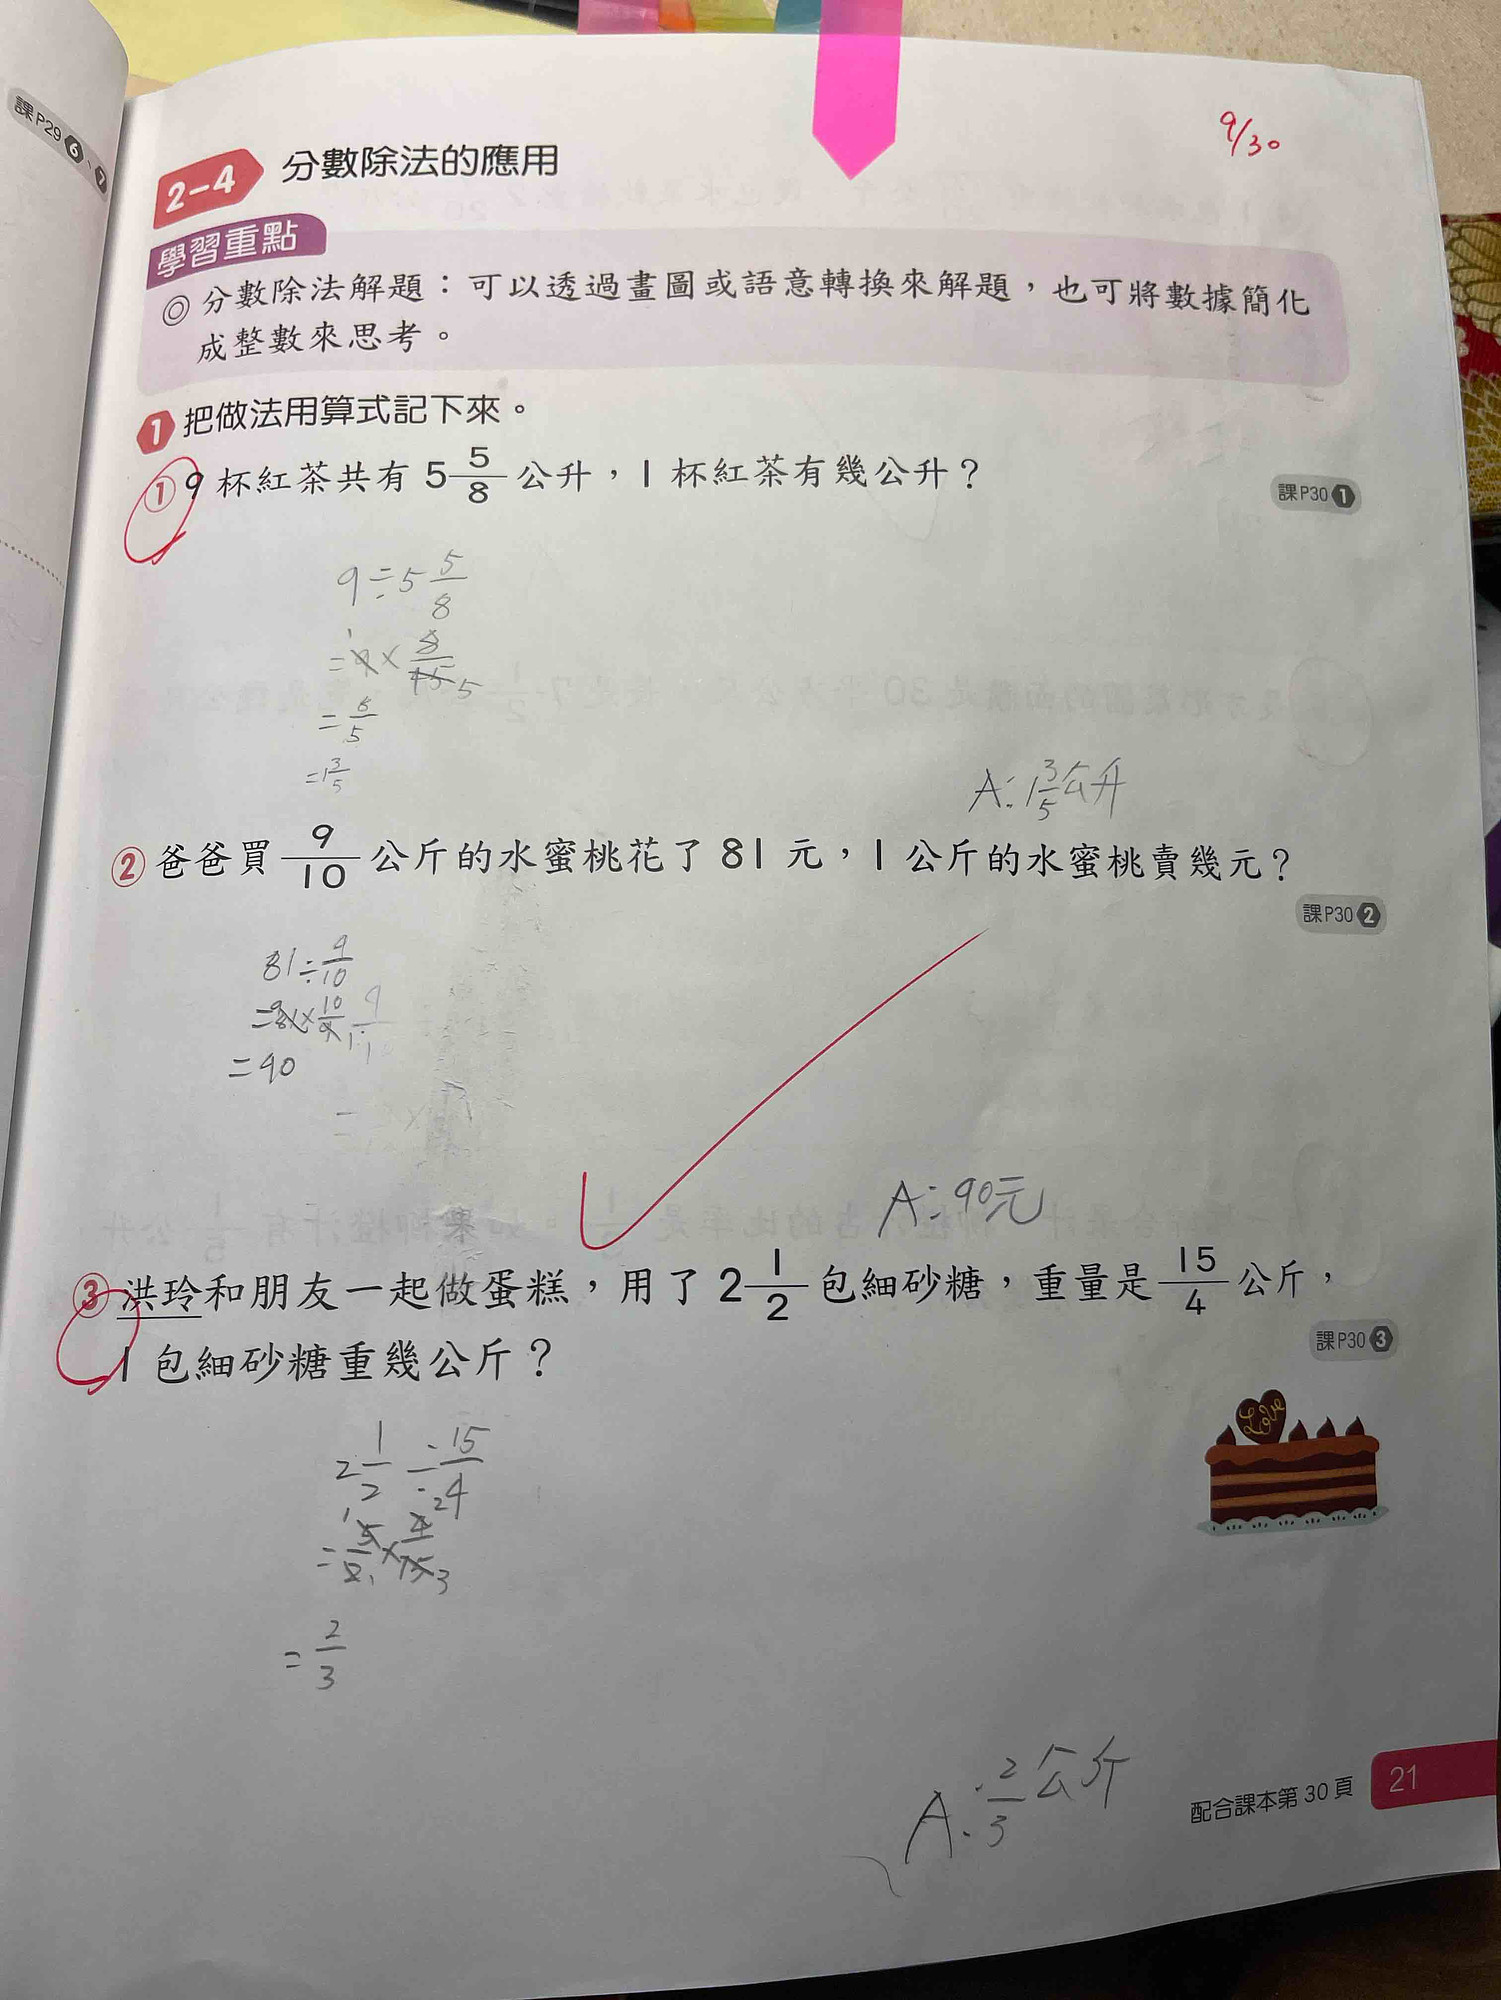 課P29 6、7
9/30
2-4 分數除法的應用
學習重點
◎ 分數除法解題：可以透過畫圖或語意轉換來解題，也可將數據簡化
成整數來思考。
1 把做法用算式記下來。
① 9 杯紅茶共有 5 5/8 公升，1 杯紅茶有幾公升？
課P30 1
9÷5 5/8
=9×8/45
=8/5
=1 3/5
A:1 3/5公升
② 爸爸買 9/10 公斤的水蜜桃花了 81 元，1 公斤的水蜜桃賣幾元？
課P30 2
81÷9/10
=81×10/9
=90
A:90元
③ 洪玲和朋友一起做蛋糕，用了 2 1/2 包細砂糖，重量是 15/4 公斤，
課P30 3
1 包細砂糖重幾公斤？
Love
2 1/2 ÷ 15/4
=5/2×4/15
=2/3
A:2/3公斤
配合課本第 30 頁 21